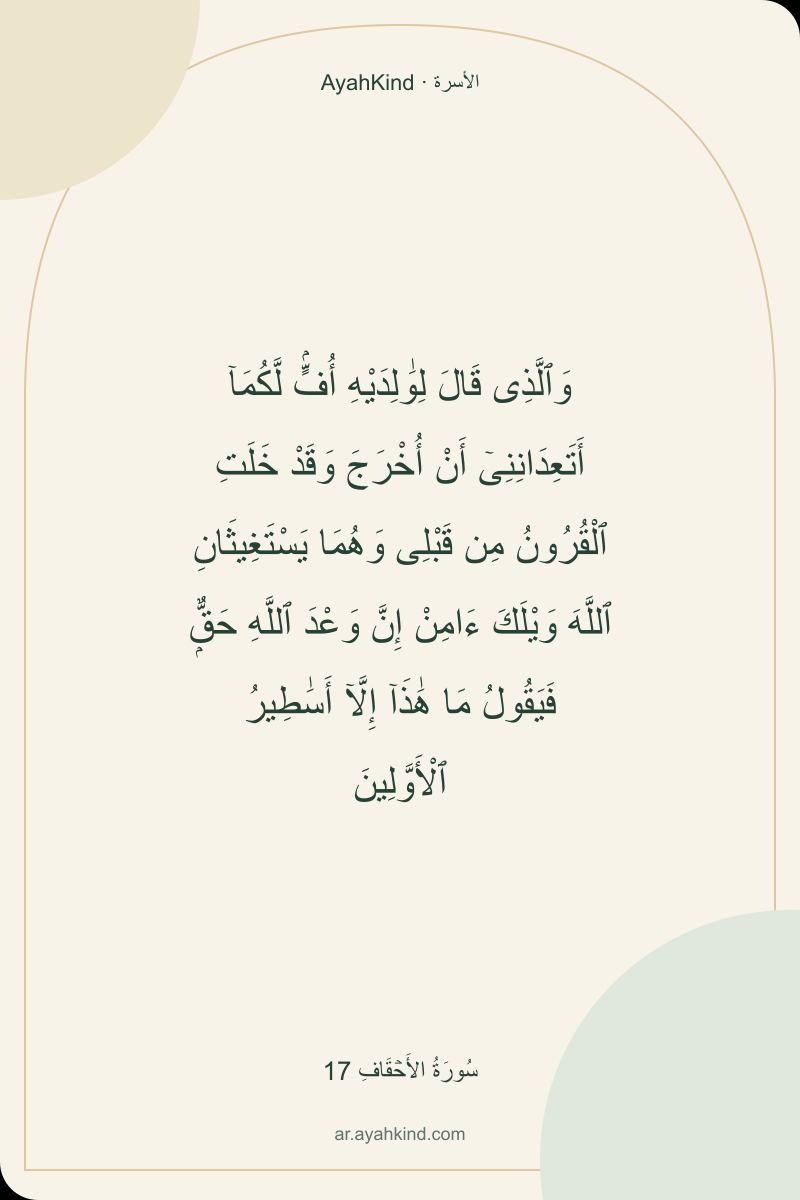 AyahKind · الأسرة
وَٱلَّذِى قَالَ لِوَٰلِدَيْهِ أُفٍّۢ لَّكُمَآ
أَتَعِدَانِنِىٓ أَنْ أُخْرَجَ وَقَدْ خَلَتِ
ٱلْقُرُونُ مِن قَبْلِى وَهُمَا يَسْتَغِيثَانِ
ٱللَّهَ وَيْلَكَ ءَامِنْ إِنَّ وَعْدَ ٱللَّهِ حَقٌّۭ
فَيَقُولُ مَا هَٰذَآ إِلَّآ أَسَٰطِيرُ
ٱلْأَوَّلِينَ
سُورَةُ الأَحۡقَافِ 17
ar.ayahkind.com